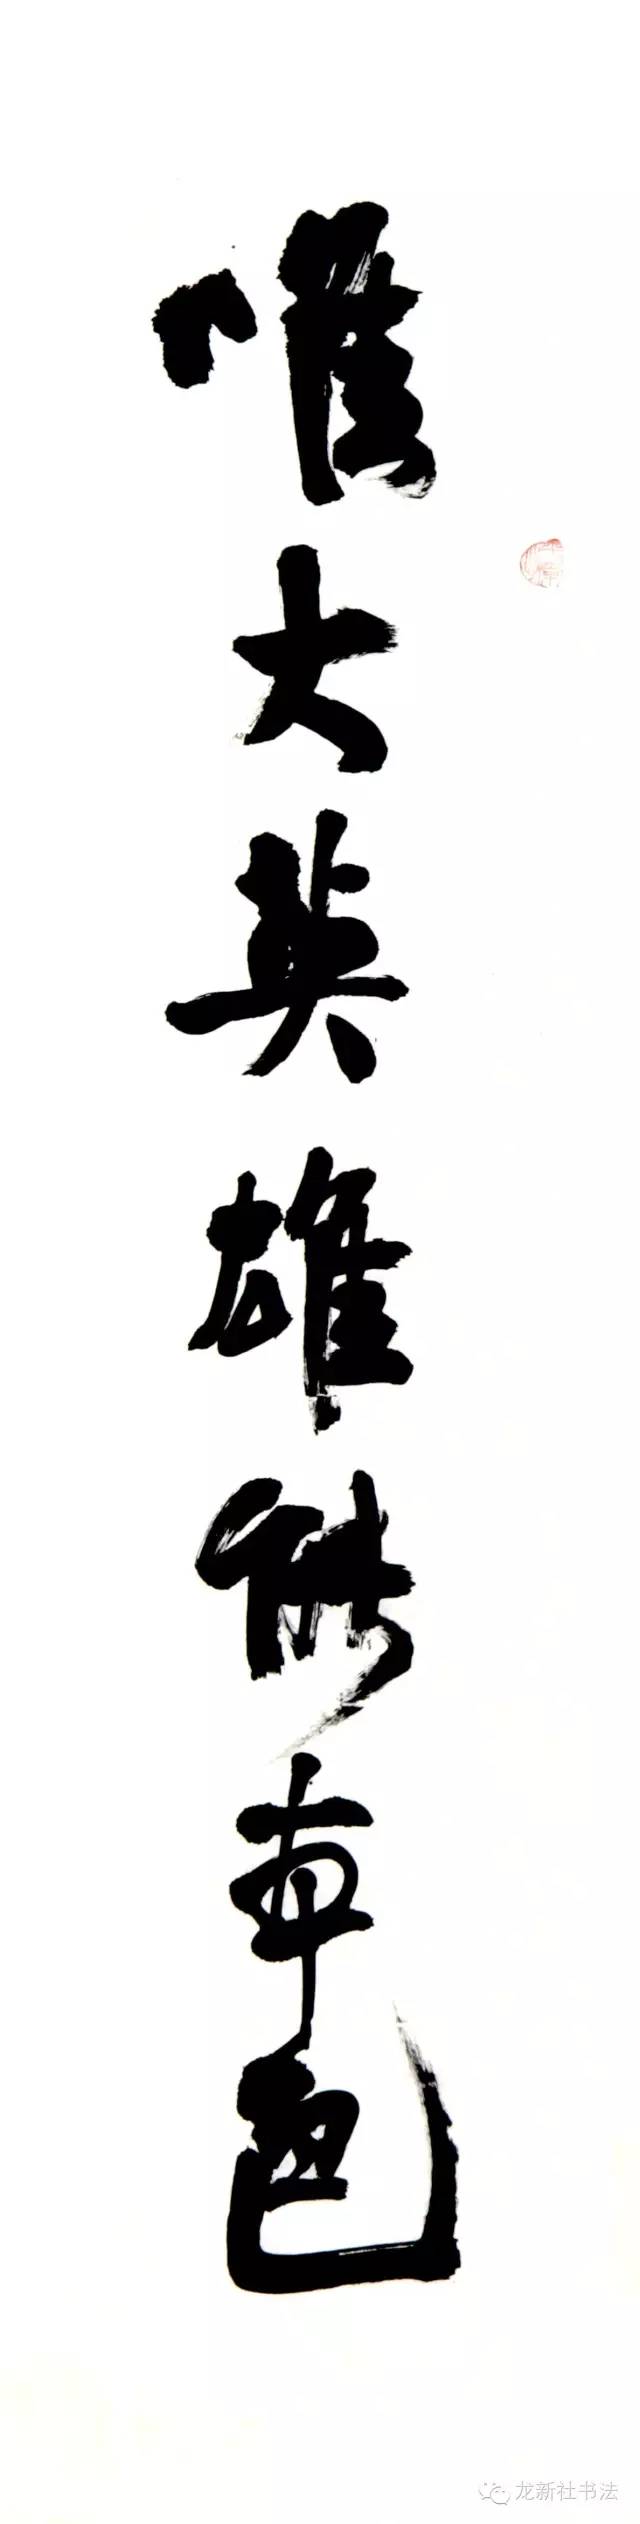 唯大英雄能本色
龙新社书法